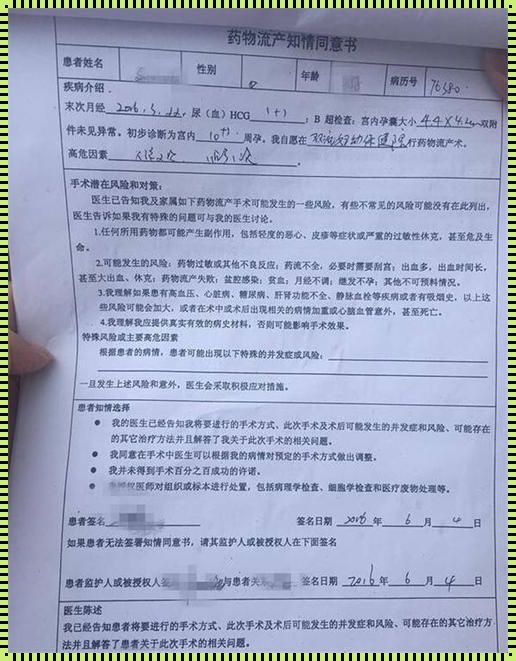 药物流产知情同意书
患者姓名 性别 年龄 病历号 76580
疾病介绍
末次月经 2016.3.22. 尿（血）HCG (+) ；B 超检查：宫内孕囊大小 4.4×4. 双附
件未见异常。初步诊断为宫内 10+ 周孕。我自愿在 妇幼保健院 行药物流产术。
高危因素 。
手术潜在风险和对策：
医生已告知我及家属如下药物流产手术可能发生的一些风险，有些不常见的风险可能没有在此列出，
医生告诉如果我有特殊的问题可与我的医生讨论。
1.任何所用药物都可能产生副作用，包括轻度的恶心、皮疹等症状或严重的过敏性休克，甚至危及生
命。
2.可能发生的风险：药物过敏或其他不良反应；药流不全，必要时需要刮宫；出血多，出血时间长，
甚至大出血、休克；药物流产失败；盆腔感染；贫血；月经不调；继发不孕；其他不可预料情况。
3.我理解如果患有高血压、心脏病、糖尿病、肝肾功能不全、静脉血栓等疾病或者有吸烟史，以上这
些风险可能会加大，或者在术中或术后出现相关的病情加重或心脑血管意外，甚至死亡。
4.我理解我应提供真实有效的病史材料，否则可能影响手术效果。
特殊风险或主要高危因素
根据患者的病情，患者可能出现以下特殊的并发症或风险：
一旦发生上述风险和意外，医生会采取积极应对措施。
患者知情选择
● 我的医生已经告知我将要进行的手术方式、此次手术及术后可能发生的并发症和风险、可能存在
的其它治疗方法并且解答了我关于此次手术的相关问题。
● 我同意在手术中医生可以根据我的病情对预定的手术方式做出调整。
● 我并未得到手术百分之百成功的许诺。
● 医师对组织或标本进行处置，包括病理学检查、细胞学检查和医疗废物处理等。
患者签名 签名日期 2016 年 6 月 4 日
如果患者无法签署知情同意书，请其监护人或被授权人在下面签名
患者监护人或被授权人签 与患者关 签名日期 2016 年 6 月 4 日
医生陈述
我已经告知患者将要进行的手术方式、此次手术及术后可能发生的并发症和风险、可能存在的其它治疗方
法并且解答了患者关于此次手术的相关问题。